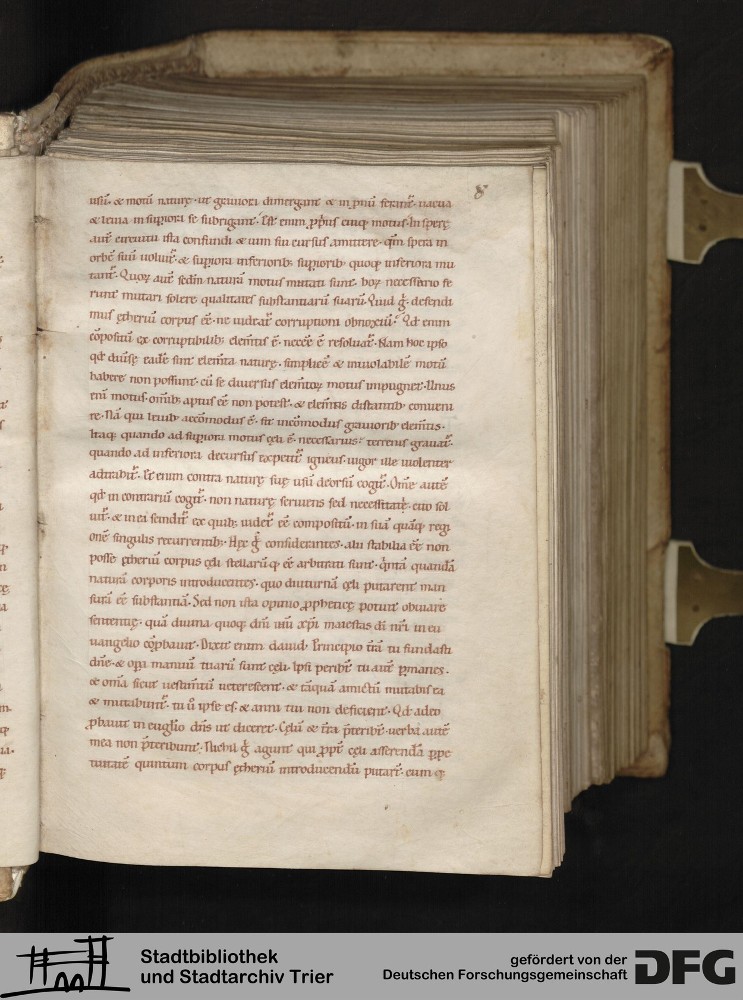 8
usū · & motū naturę · ut graviora dimergant̄ & in p̄nū ferant̄ · vacua
& levia in supiora se subrigant̄ · Est enim ꝓprius cuiq; motus · In sperę
aut̄ circuitu ista confundi & vim sui cursus amittere · qm̄ spera in
orbē suū voluit̄ · & supiora inferiorib; supiorib; quoq; inferiora mu
tant̄ · Quoꝝ aut̄ scdm naturā motus mutati sunt · hoꝝ necessario fe
runt̄ mutari solere qualitates substantiarū suarū · Quid g̊ · defendi
mus ętheriū corpus eē · ne videat̄ corruptioni obnoxiū · Qd enim
cōpositū ex corruptibilib; elemtis ē · necēē ē resoluat̄ · Nam hoc ipso
qd duīsę eadē sint elemta naturę · simplicē & inviolabilē motū
habere non possunt · cū se diversus elemtoꝝ motus impugnet · Unus
eni motus · omib; aptus eē non potest · & elemtis distantib; conveni
re · Nā qui levib; accōmodus ē · fit incōmodus graviorib; elemtis ·
Itaq; quando ad supiora motus cęli ē · necessarius · terrenis gravat̄ ·
quando ad inferiora decursus expetit̄ igneus vigor ille violenter
adtrahit̄ · Est enim contra naturę suę usū deorsū cogit̄ · Ome autē
qd in contrariū cogit̄ · non naturę serviens sed necessitatę · cito sol
vit̄ · & in ea scindit̄ ex quib; videt̄ eē compositū · in suā quāq; regi
onē singulis recurrentib; · Hęc g̊ considerantes · alii stabilia eē non
posse ętheriū corpus cęli stellarūq; eē arbitrati sunt · qntā quandā
naturā corporis introducentes · quo diuturnā cęli putarent man
surā eē substantiā · Sed non ista opinio ꝓpheticę potuit obviare
sententię · quā divina quoq; dni ihu xpi maiestas di nri in eu
vangelio cōpbavit · Dixit enim david · Principio trā tu fundasti
dnē · & opa manuū tuarū sunt cęli · Ipsi peribt̄ tu aut̄ pmanes ·
& oma sicut vestimtū veterescent · & tāquā amictū mutabis ea
& mutabunt̄ · tu ů ipse es · & anni tui non deficient · Qd adeo
ꝓbavit in euglio dns ut diceret · Cęlū & tra pteribt̄ · verba autē
mea non pteribunt · Nichil g̊ agunt qui ꝓpt̄ cęli asserendā ppe
tuitatē quintum corpus ętheriū introducendū putant̄ · cum q;
Stadtbibliothek
und Stadtarchiv Trier
gefördert von der
Deutschen Forschungsgemeinschaft
DFG